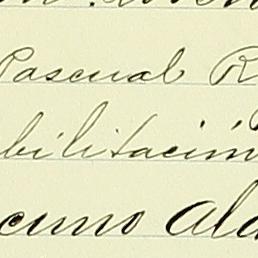 Pascual R
bilitación
cuno Ala